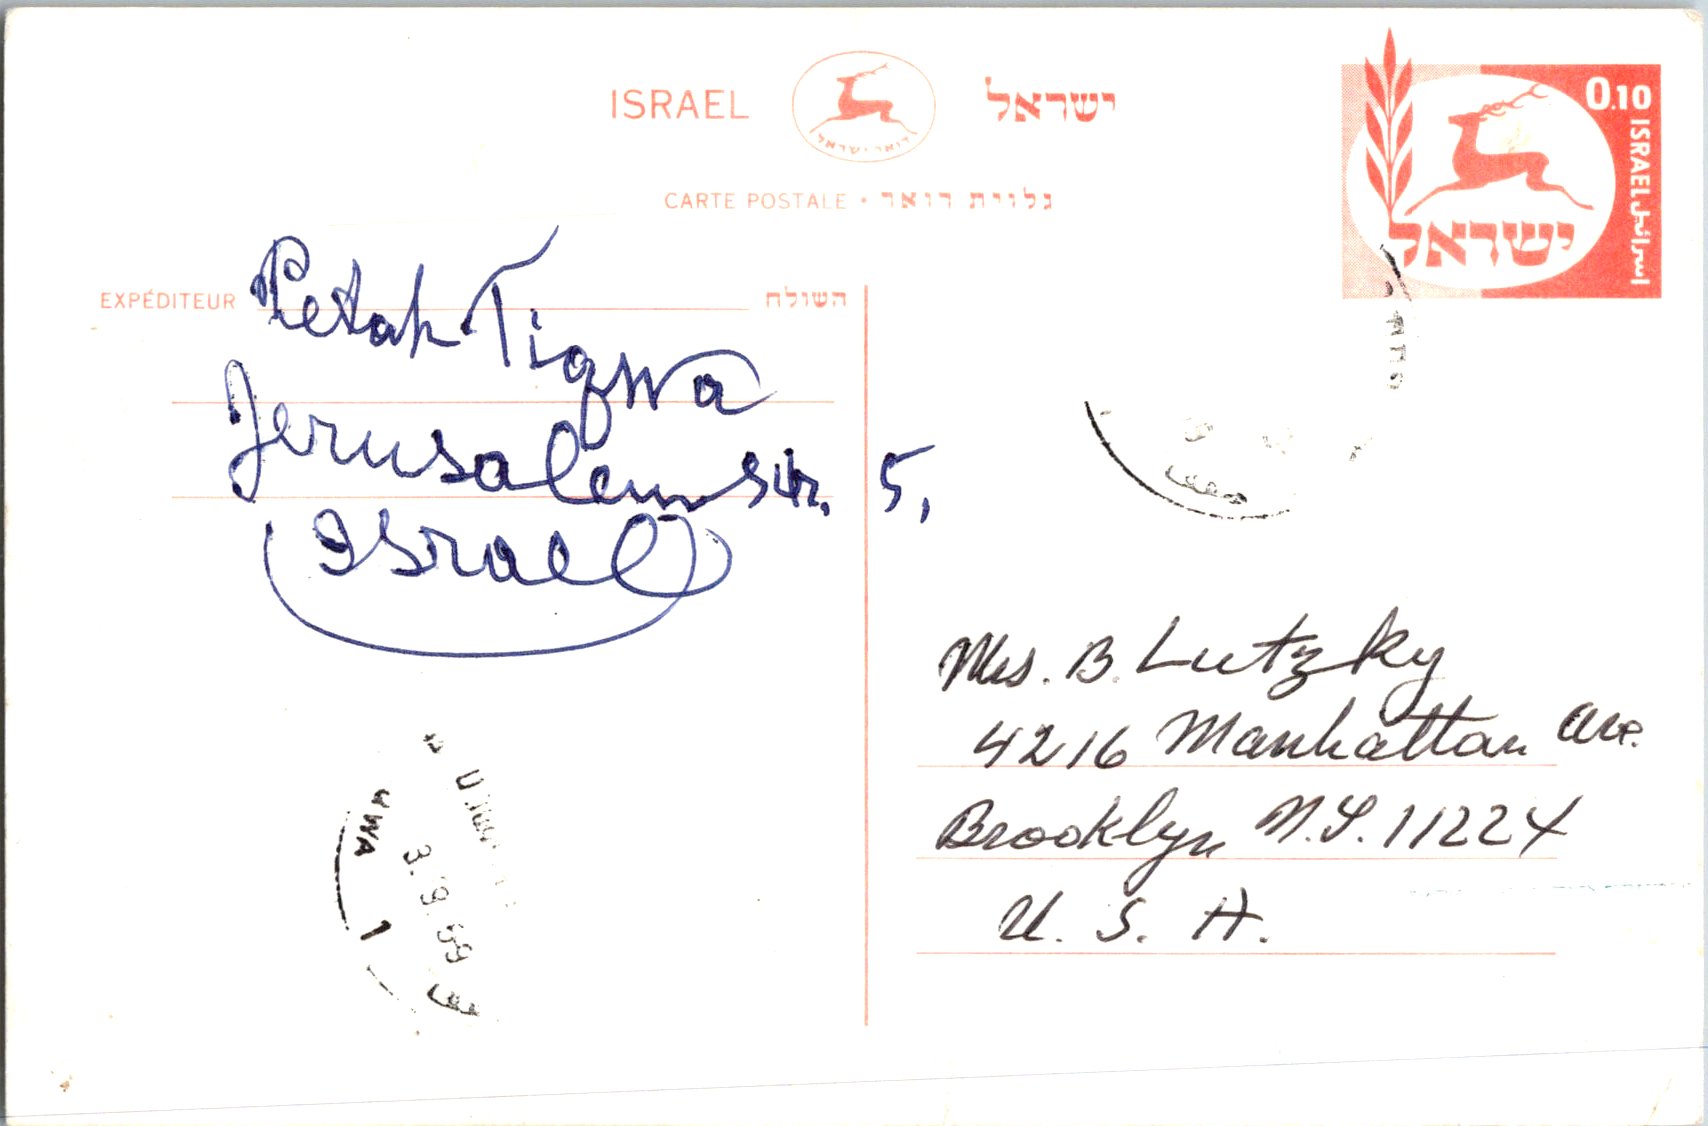 ISRAEL ישראל
דואר ישראל
CARTE POSTALE • גלוית דואר
0.10
ISRAEL اسرائيل
ישראל
EXPÉDITEUR השולח
Petah Tiqwa
Jerusalem Str. 5,
Israel
Mrs. B. Lutzky
4216 Manhattan Ave.
Brooklyn N.Y. 11224
U. S. A.
3. 9. 69
1